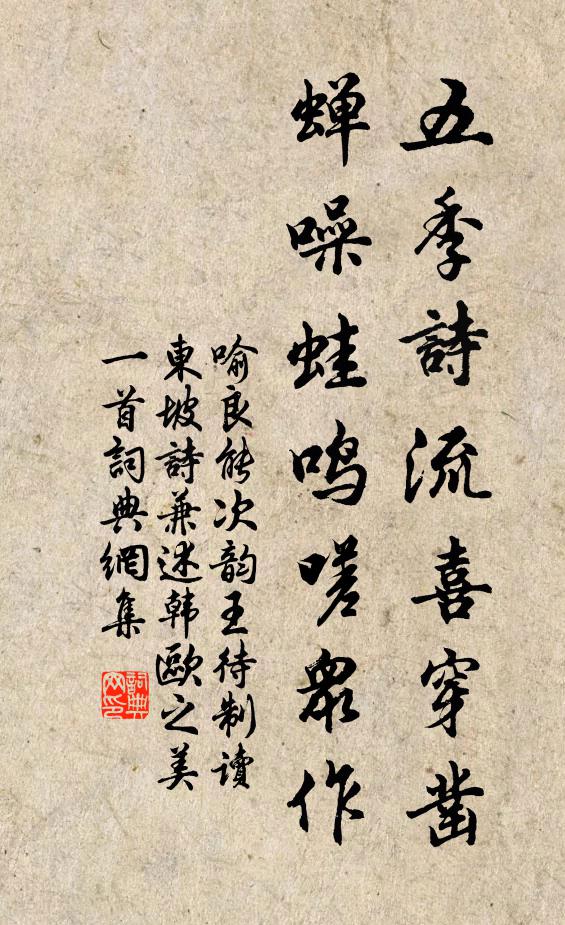 五季詩流喜穿凿
蝉噪蛙鸣嗟衆作
喻良能次韵王待制读
東坡詩兼述韩歐之美
一首詞典網集
詞典
网印